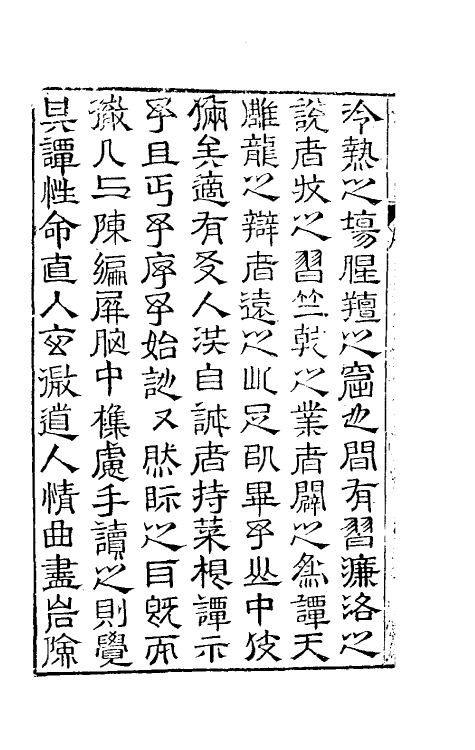 冷熱之場腥羶之窟也間有習濂洛之
說者牧之習竺乾之業者闢之爲譚天
雕龍之辯者遠之此足以畢予山中伎
倆矣適有友人洪自誠者持菜根譚示
予且丐予序予始訑又然眎之耳既而
徹几上陳編屏胸中襍慮手讀之則覺
其譚性命直入玄微道人情曲盡岩險